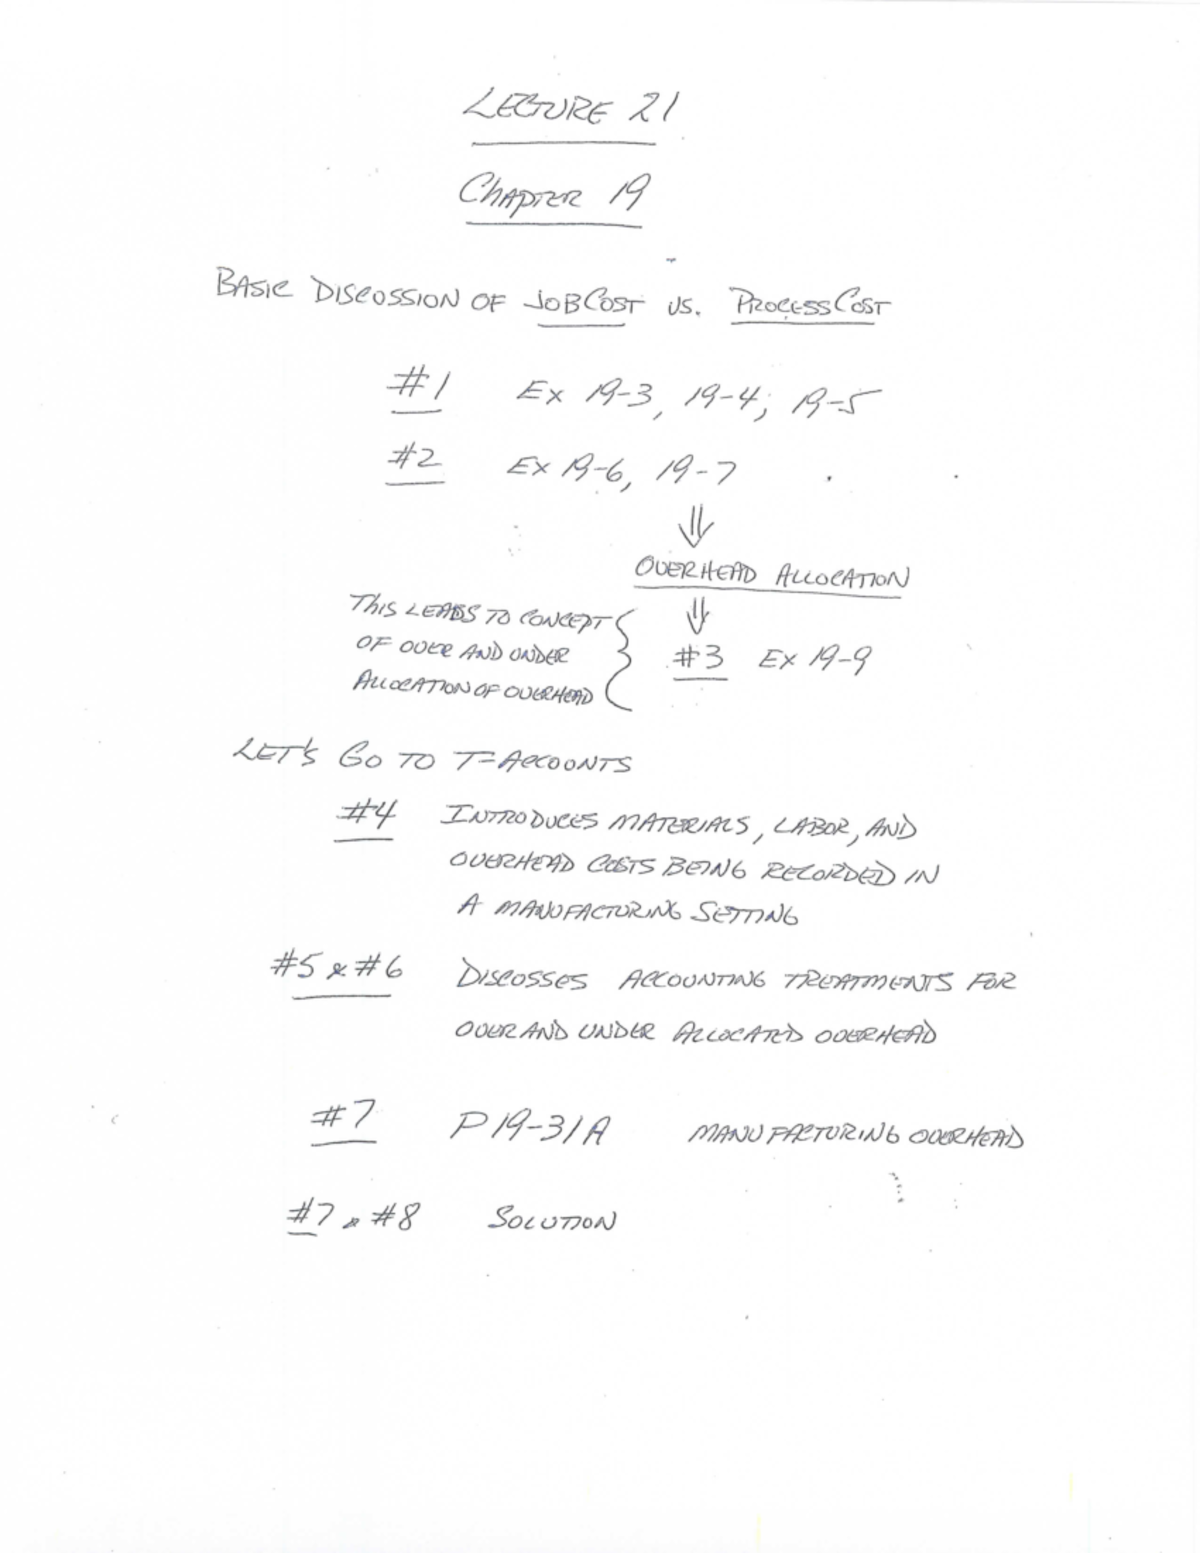 LECTURE 21
CHAPTER 19
BASIC DISCUSSION OF JOB COST VS. PROCESS COST
#1 EX 19-3, 19-4; 19-5
#2 EX 19-6, 19-7
⇓
OVERHEAD ALLOCATION
⇓
THIS LEADS TO CONCEPT
OF OVER AND UNDER
ALLOCATION OF OVERHEAD
#3 EX 19-9
LET'S GO TO T-ACCOUNTS
#4 INTRODUCES MATERIALS, LABOR, AND
OVERHEAD COSTS BEING RECORDED IN
A MANUFACTURING SETTING
#5 & #6 DISCUSSES ACCOUNTING TREATMENTS FOR
OVER AND UNDER ALLOCATED OVERHEAD
#7 P 19-31A MANUFACTURING OVERHEAD
#7 & #8 SOLUTION